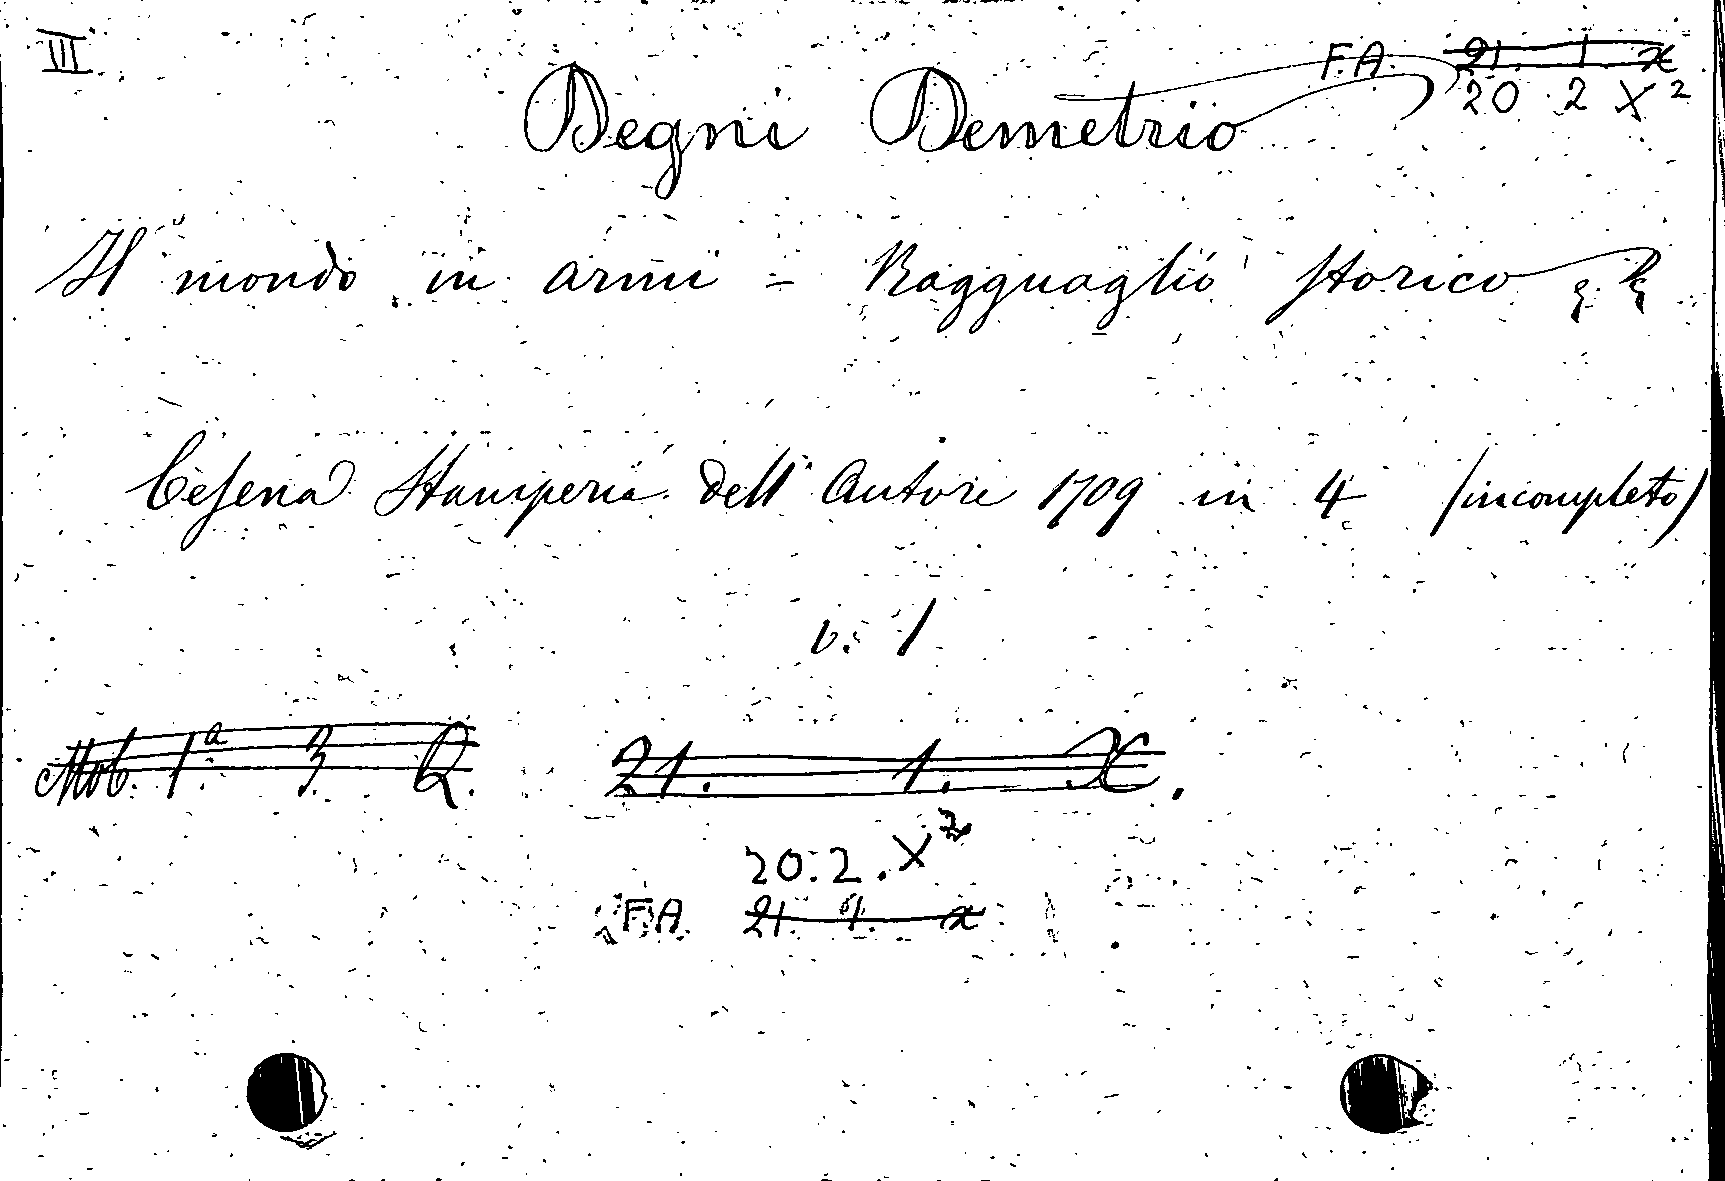 III
F.A. 21. 1. X
20 . 2 X²
Degni Demetrio
Il mondo in armi - Ragguaglio storico
Cesena Stamperia dell' Autore 1709 in 4 (incompleto)
v. 1
Mob. 1ª. 3 Q. 21. 1. X.
20.2.X²
F.A. 21. 1. X